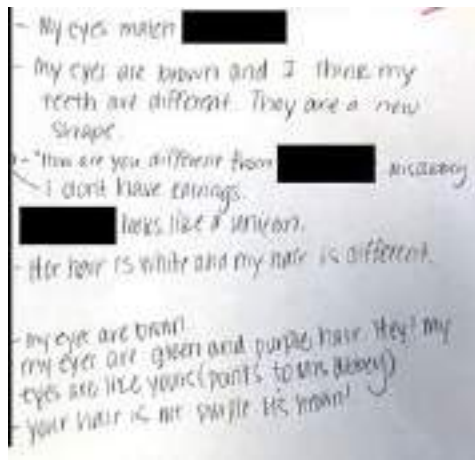 - My eyes match
- My eyes are brown and I think my
teeth are different. They are a new
shape.
- "How are you different from
I dont have earrings.
looks like a unicorn.
- Her hair is white and my hair is different.
- my eyes are brown!
my eyes are green and purple hair. Hey! My
eyes are like yours (points to ms abbey)
- your hair is not purple its brown!